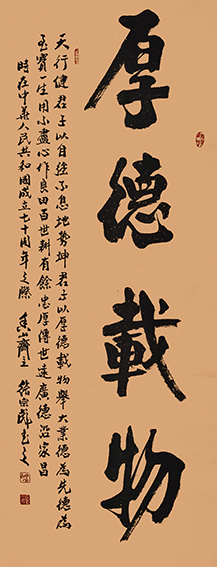 厚德載物
天行健君子以自强不息地勢坤君子以厚德載物舉大業德為先德為
至寶一生用不盡心作良田百世耕有餘忠厚傳世遠廣德沿家昌
時在中華人民共和國成立七十周年之際 主